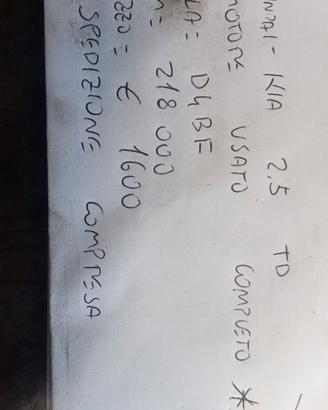 KIA 2.5 TD
MOTORE USATO COMPLETO *
D4BF
218 000
€ 1600
SPEDIZIONE COMPRESA